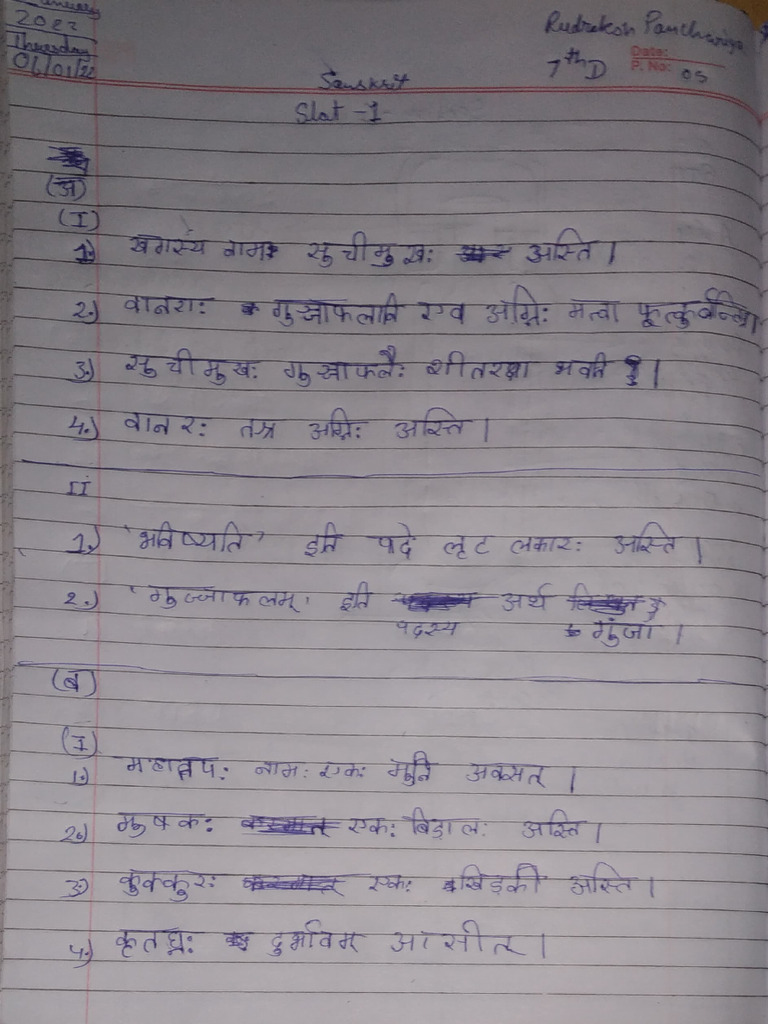 January
2022
Thursday
06/01/22
Rudraksh Panchariya
7th D
Date:
P. No: 05
Sanskrit
Slot -1
(अ)
(I)
1.) खगस्य नामः सुचीमुखः अस्ति।
2.) वानराः गुञ्जाफलानि एव अग्निः मत्वा फूत्कुर्वन्ति।
3.) सुचीमुखः गुञ्जाफलैः शीतरक्षा भवति।
4.) वानरः तत्र अग्निः अस्ति।
II
1.) 'भविष्यति' इति पदे लृट लकारः अस्ति।
2.) 'गुञ्जाफलम्' इति पदस्य अर्थ गुंजा।
(ब)
(I)
1.) महातपः नामः एकः मुनि अवसत्।
2.) मुषकः एकः बिडालः अस्ति।
3.) कुक्कुरः एकः खिड़की अस्ति।
4.) कृतघ्नः दुर्भावम् आसीत्।